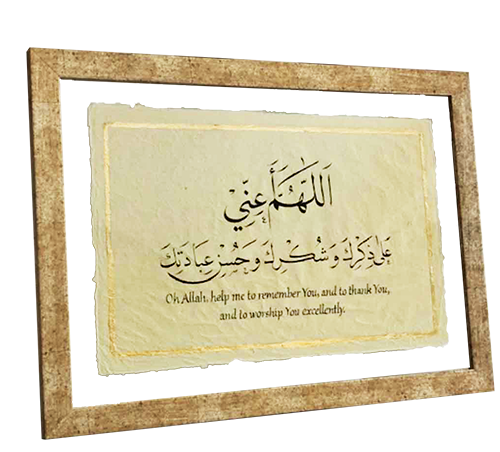 اَللّٰهُمَّ أَعِنِّيْ
عَلَى ذِكْرِكَ وَشُكْرِكَ وَحُسْنِ عِبَادَتِكَ
Oh Allah, help me to remember You, and to thank You,
and to worship You excellently.